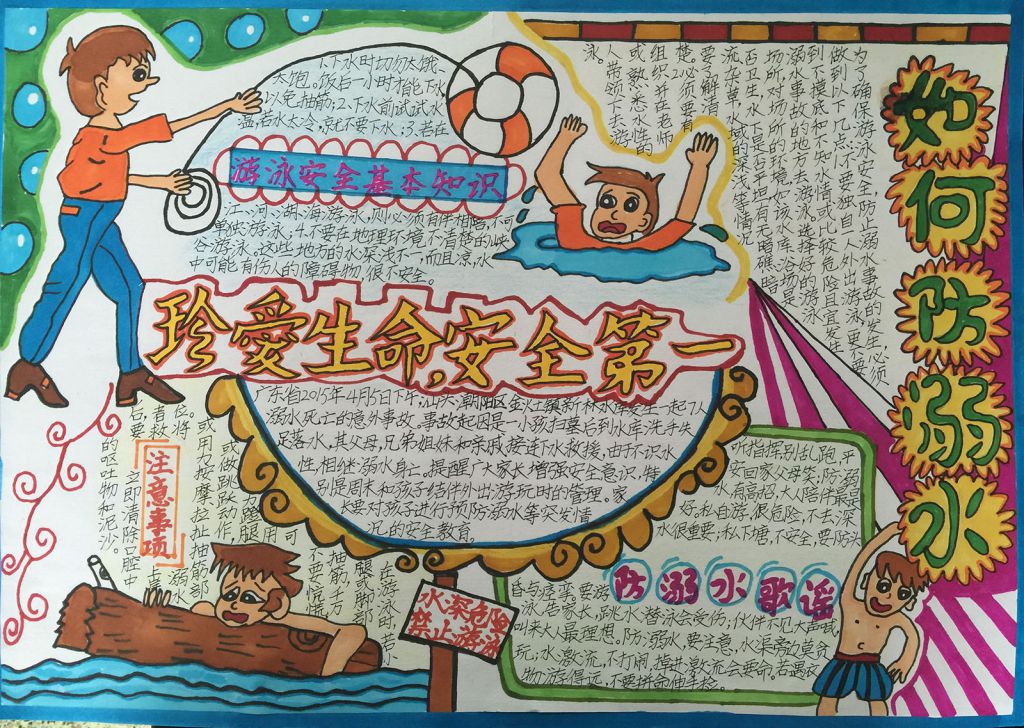 1、下水时切勿太饿、
太饱。饭后一小时才能下水
以免抽筋;2、下水前试试水
温,若水太冷,就不要下水;3、若在
游泳安全基本知识
江、河、湖、海游泳,则必须有伴相陪,不可
单独游泳;4、不要在地理环境不清楚的峡
谷游泳。这些地方的水深浅不一,而且凉,水
中可能有伤人的障碍物,很不安全。
如何防溺水
为了确保游泳安全,防止溺水事故的发生必须
做到以下几点:不要独自一人外出游泳,更不要
到不摸底和不知水情或比较危险且宜发生
溺水事故的地方去游泳。选择好的游泳
场所,对场所的环境,如该水库、浴场是
否卫生,水下是否平坦,有无暗礁、暗
流、杂草,水域的深浅等情况
要了解清
楚。2、必须要有
组织并在老师
或熟悉水性的
人带领下去游
泳。
珍爱生命,安全第一
广东省2015年4月5日下午,汕头,朝阳区金灶镇新林水库发生一起7人
溺水死亡的意外事故。事故起因是一小孩扫墓后到水库洗手失
足落水,其父母,兄弟姐妹和亲戚接连下水救援,由于不识水
性相继溺水身亡。提醒广大家长增强安全意识,特
别是周末和孩子结伴外出游玩时的管理。家
长要对孩子进行预防溺水等突发情
况的安全教育。
注意事项
在游泳时,若小
腿或脚部
抽筋,千万
不要惊慌,可
用力蹬腿
或做跳跃动作,
或用力按摩拉扯抽筋部
位。将
溺水
者救
后,要
立即清除口腔中
的呕吐物和泥沙。
水深危险
禁止游泳
防溺水歌谣
听指挥,别乱跑,平
安回家父母笑。防溺
水,有高招,大人陪伴最
好。私自游,很危险,不去深
水很重要;私下塘,不安全,要防头
昏与痉挛。要游
泳,告家长,跳水替泳会受伤;伙伴不见大声喊,
叫来大人最理想。防溺水,要注意,水渠旁边莫贪
玩;水激流,不打闹,掉进激流会要命。若遇衣
物游得远,不要拼命伸手捡。